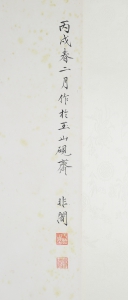 丙戌春二月作於玉山硯齋 非闇